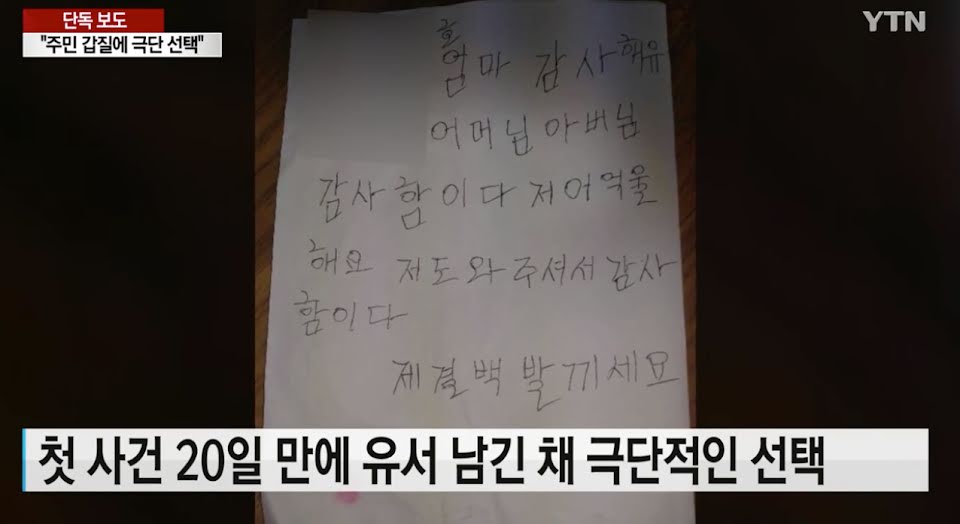 단독 보도
"주민 갑질에 극단 선택"
YTN
엄마 감사해유
어머님 아버님
감사함이다 저어억울
해요 저도와주셔서 감사
함이다
제결백발끼세요
첫 사건 20일 만에 유서 남긴 채 극단적인 선택